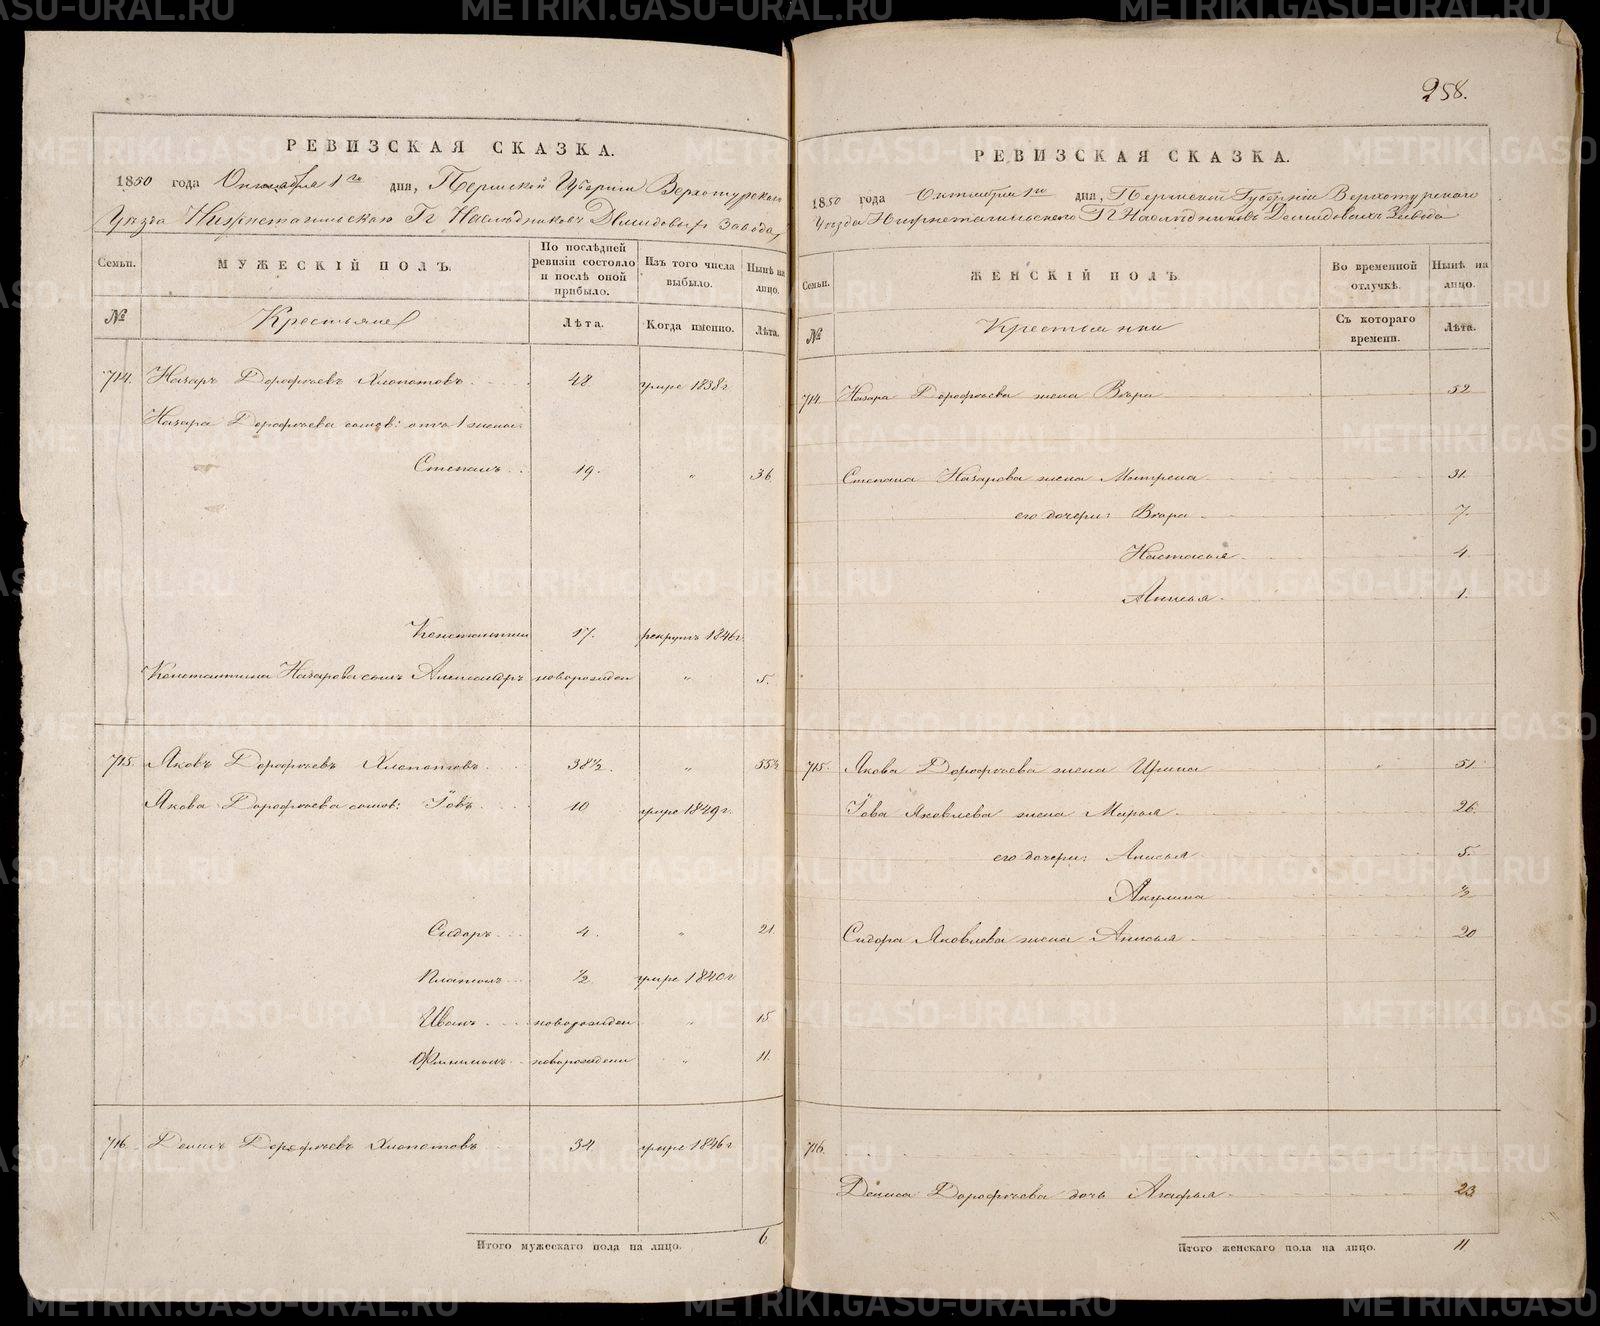 РЕВИЗСКАЯ СКАЗКА.
1850 года Октября 1го дня, Пермской Губернии Верхотурскаго
Уѣзда Нижнетагильскаго Гг Наслѣдниковъ Демидовыхъ Завода
Семьи. МУЖЕСКІЙ ПОЛЪ. По послѣдней ревизіи состояло и послѣ оной прибыло. Изъ того числа выбыло. Нынѣ на лицо.
№ Крестьяне Лѣта. Когда именно. Лѣта.
714. Назаръ Дорофѣевъ Хлопотовъ 48 умре 1838г
Назара Дорофѣева сынов: отъ 1 жены
Степанъ 19. " 36
Константин 17. рекрутъ 1846г
Константина Назарова сынъ Александръ новорожден " 5.
715. Яковъ Дорофѣевъ Хлопотовъ 38½ " 55½
Якова Дорофѣева сынов: Іовъ 10 умре 1849г.
Сидоръ 4. " 21
Платонъ ½ умре 1840г
Иванъ новорожден " 15
Филимонъ новорожден " 11.
716. Денисъ Дорофѣевъ Хлопотовъ 34 умре 1846г
Итого мужескаго пола на лицо. 6
258.
РЕВИЗСКАЯ СКАЗКА.
1850 года Октября 1го дня, Пермской Губерніи Верхотурскаго
Уѣзда Нижнетагильскаго Гг Наслѣдниковъ Демидовыхъ Завода
Семьи. ЖЕНСКІЙ ПОЛЪ. Во временной отлучкѣ. Нынѣ на лицо.
№ Крестьянки Съ котораго времени. Лѣта.
714. Назара Дорофѣева жена Вѣра 52
Степана Назарова жена Матрена 31.
его дочери: Вѣра 7.
Настасья 4
Анисья 1.
715. Якова Дорофѣева жена Ирина " 51.
Іова Яковлева жена Марья 26.
его дочери: Анисья 5.
Акулина ½
Сидора Яковлева жена Анисья 20
716.
Дениса Дорофѣева дочь Агафья 23
Итого женскаго пола на лицо. 11
METRIKI.GASO-URAL.RU